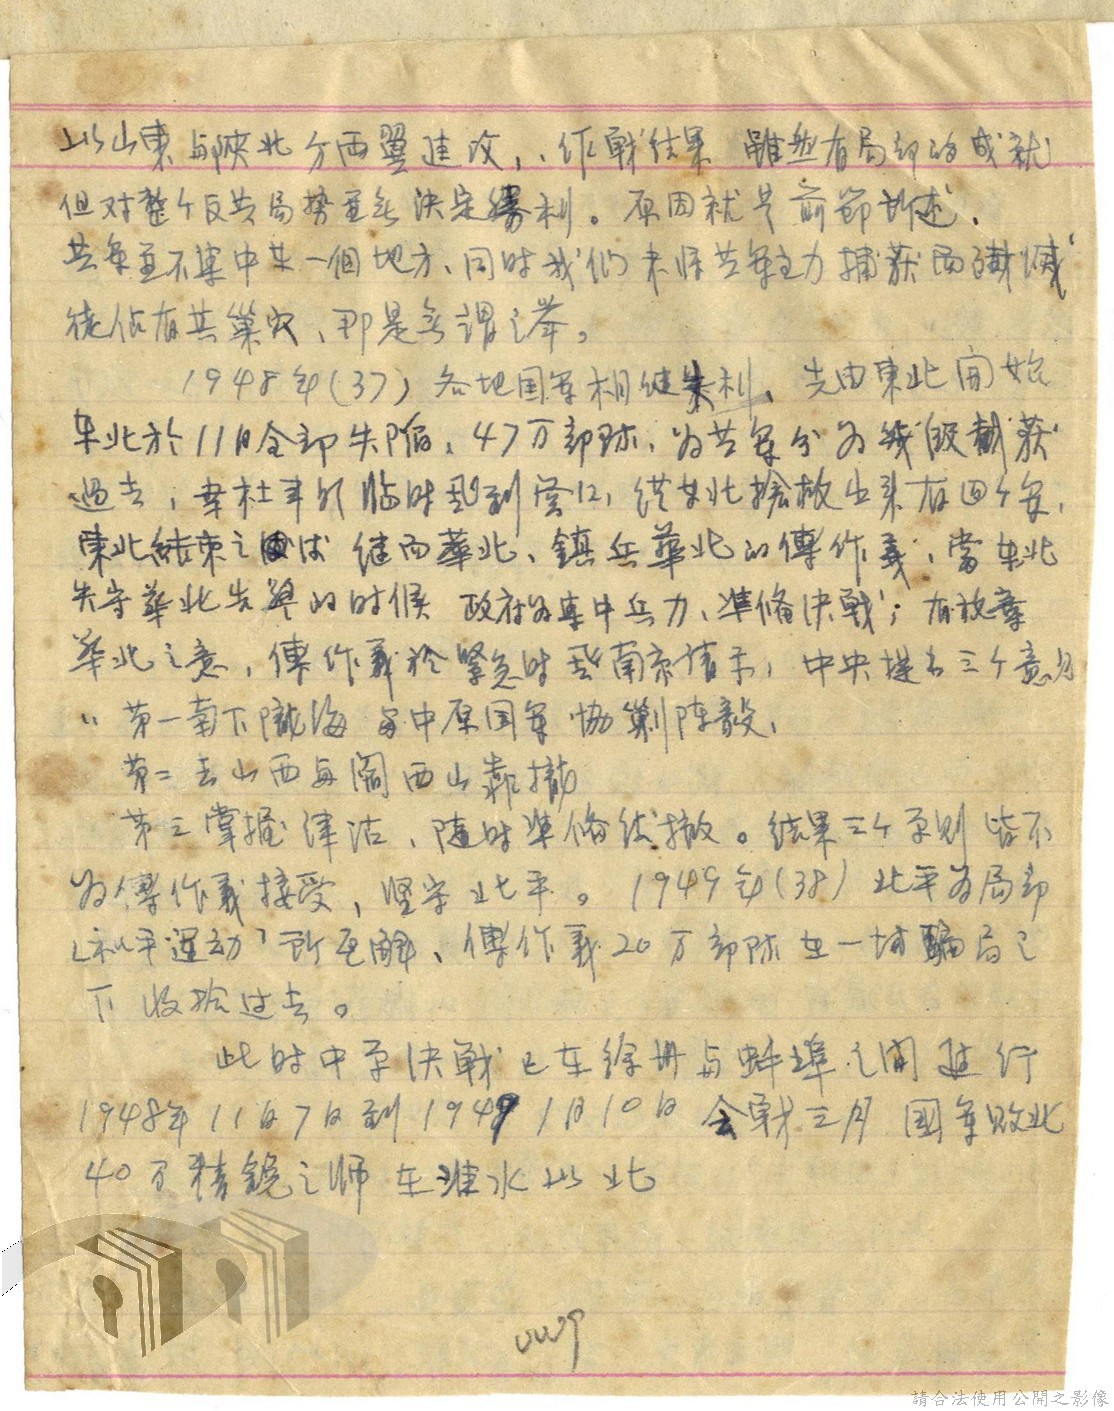 以山東與陝北分両翼進攻，作戰结果 雖然有局部的成就
但对整个反共局势並無決定勝利。原因就是前節所述、
共軍並不集中某一個地方、同时我們未将共軍主力捕获而殲滅
徒佔有其巢穴、那是無謂之举。
1948年(37)各地国軍相继失利、先由東北開始
东北於11月全部失陷，47万部队，为共軍分为
过去，幸杜聿明临时飛到营口，從东北搶救出来有四个軍，
東北結束之後 继而華北、鎮兵華北的傅作義，當东北
失守華北告警的时候 政府为集中兵力、準備決戰；有放棄
華北之意，傅作義於緊急时飛南京请示，中央提出三个意见
第一南下隴海 与中原国軍协剿陈毅、
第二去山西与閻西山靠攏
第三掌握津沽，随时準備後撤。结果三个原则皆不
为傅作義接受，坚守北平。1949年(38)北平为局部
「和平運动」所瓦解、傅作義20万部队在一场騙局之
下收拾过去。
此时中原決戰已在徐州与蚌埠之间進行
1948年11月7日到1949 1月10日 会戰三月 國軍敗北
40万精銳之师在淮水以北
請合法使用公開之影像